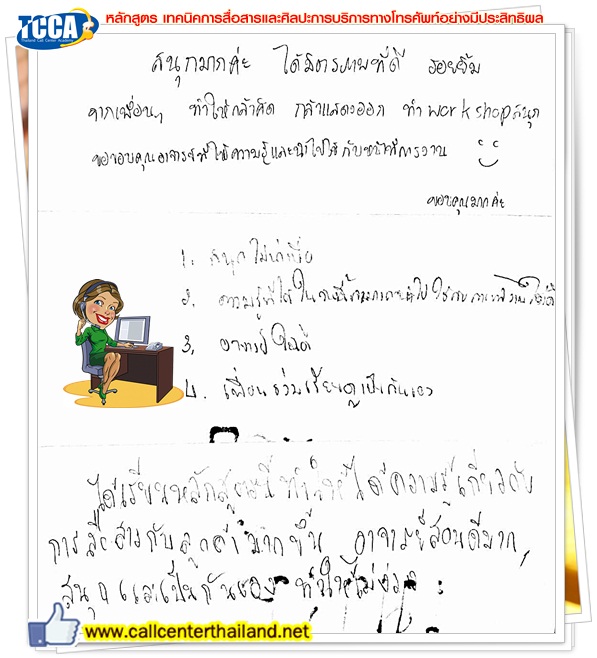 TCCA
Thailand Call Center Academy
หลักสูตร เทคนิคการสื่อสารและศิลปะการบริการทางโทรศัพท์อย่างมีประสิทธิผล
สนุกมากค่ะ ได้มิตรภาพที่ดี รอยยิ้ม
จากเพื่อนๆ ทำให้กล้าคิด กล้าแสดงออก ทำ workshop สนุก
ขอขอบคุณอาจารย์ที่ให้ความรู้และนำไปใช้กับหน้าที่การงาน
ขอบคุณมากค่ะ
1. สนุก ไม่น่าเบื่อ
2. ความรู้ที่ได้ในวันนี้สามารถนำไปใช้กับการทำงานได้ดี
3. อาจารย์ใจดี
4. เพื่อนร่วมเรียนดูเป็นกันเอง
ได้เรียนหลักสูตรนี้ ทำให้ได้ความรู้เกี่ยวกับ
การสื่อสารกับลูกค้ามากขึ้น อาจารย์สอนดีมาก,
สนุก และเป็นกันเอง ทำให้ไม่ง่วง
www.callcenterthailand.net